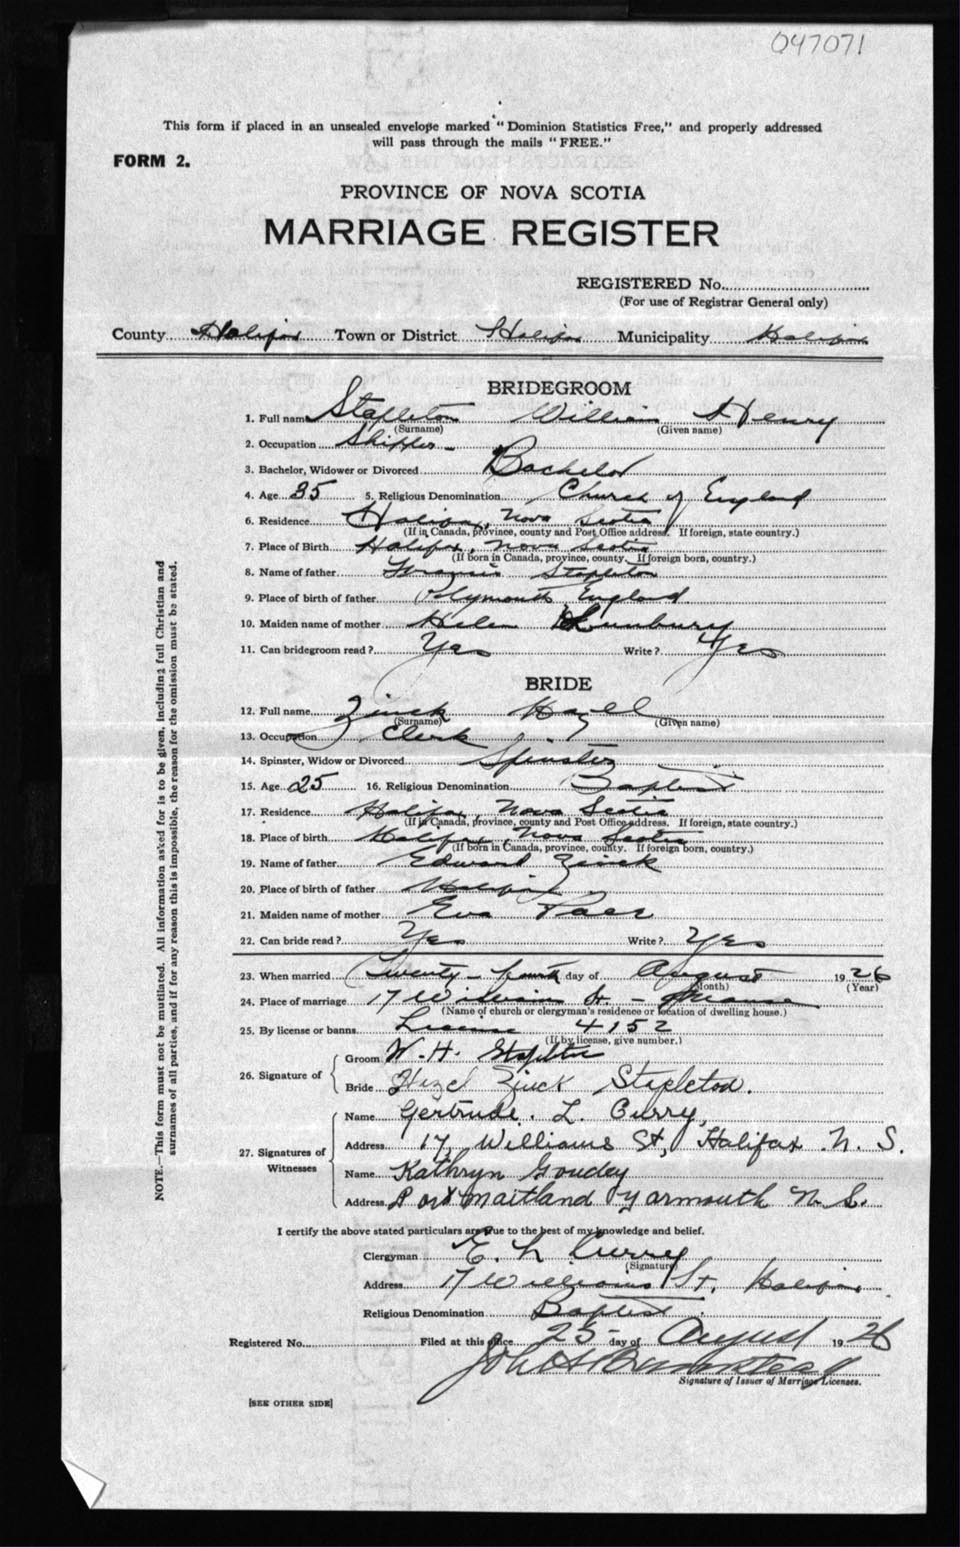 047071
This form if placed in an unsealed envelope marked "Dominion Statistics Free," and properly addressed
will pass through the mails "FREE."
FORM 2.
PROVINCE OF NOVA SCOTIA
MARRIAGE REGISTER
REGISTERED No.
(For use of Registrar General only)
County Halifax Town or District Halifax Municipality Halifax
BRIDEGROOM
1. Full name Stapleton William Henry
(Surname) (Given name)
2. Occupation Shipper
3. Bachelor, Widower or Divorced Bachelor
4. Age 35 5. Religious Denomination Church of England
6. Residence Halifax, Nova Scotia
(If in Canada, province, county and Post Office address. If foreign, state country.)
7. Place of Birth Halifax, Nova Scotia
(If born in Canada, province, county. If foreign born, country.)
8. Name of father Francis Stapleton
9. Place of birth of father Plymouth England
10. Maiden name of mother Helen
11. Can bridegroom read? Yes Write? Yes
BRIDE
12. Full name Zinck Hazel
(Surname) (Given name)
13. Occupation Clerk
14. Spinster, Widow or Divorced Spinster
15. Age 25 16. Religious Denomination Baptist
17. Residence Halifax, Nova Scotia
(If in Canada, province, county and Post Office address. If foreign, state country.)
18. Place of birth Halifax, Nova Scotia
(If born in Canada, province, county. If foreign born, country.)
19. Name of father Edward Zinck
20. Place of birth of father Halifax
21. Maiden name of mother Eva
22. Can bride read? Yes Write? Yes
23. When married Twenty-fourth day of August 1926
(Month) (Year)
24. Place of marriage 17 Williams St. - Manse
(Name of church or clergyman's residence or location of dwelling house.)
25. By license or banns License 4152
(If by license, give number.)
26. Signature of
Groom W. H. Stapleton
Bride Hazel Zinck Stapleton.
27. Signatures of Witnesses
Name Gertrude. L. Curry,
Address 17 Williams St, Halifax N. S.
Name Kathryn Goudey
Address Port Maitland Yarmouth N. S.
I certify the above stated particulars are true to the best of my knowledge and belief.
Clergyman E. L. Curry
(Signature)
Address 17 Williams St, Halifax
Religious Denomination Baptist.
Registered No. Filed at this office 25 day of August 1926
John H Barnstead
Signature of Issuer of Marriage Licenses.
[SEE OTHER SIDE]
NOTE.—This form must not be mutilated. All information asked for is to be given, including full Christian and
surnames of all parties, and if for any reason this is impossible, the reason for the omission must be stated.